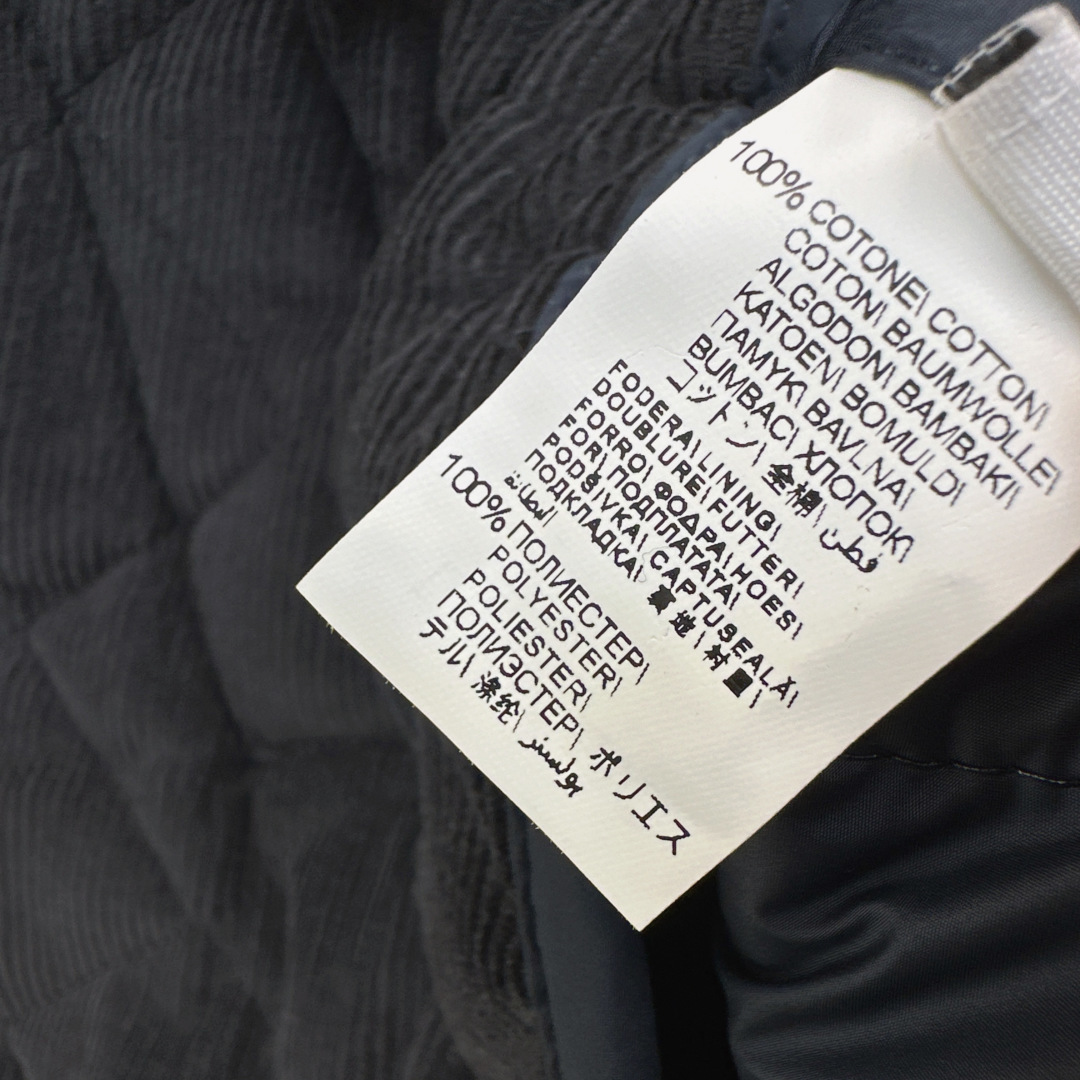 100% COTONE\ COTTON\
COTON\ BAUMWOLLE\
ALGODON\ BAMBAKI\
KATOEN\ BOMULD\
ПАМУК\ BAVLNA\
BUMBAC\ ХЛОПОК\
コットン\ 全棉\ قطن
FODERA\ LINING\
DOUBLURE\ FUTTER\
FORRO\ ΦΟΔΡΑ\ HOES\
FOR\ ПОДПЛАТАТА\
PODŠIVKA\ CAPTUSEALĂ\
ПОДКЛАДКА\ 裏地\ 衬里\
البطانة
100% ПОЛИЕСТЕР\
POLYESTER\
POLIESTER\
ПОЛИЭСТЕР\ ポリエス
テル\ 涤纶\ بوليستر